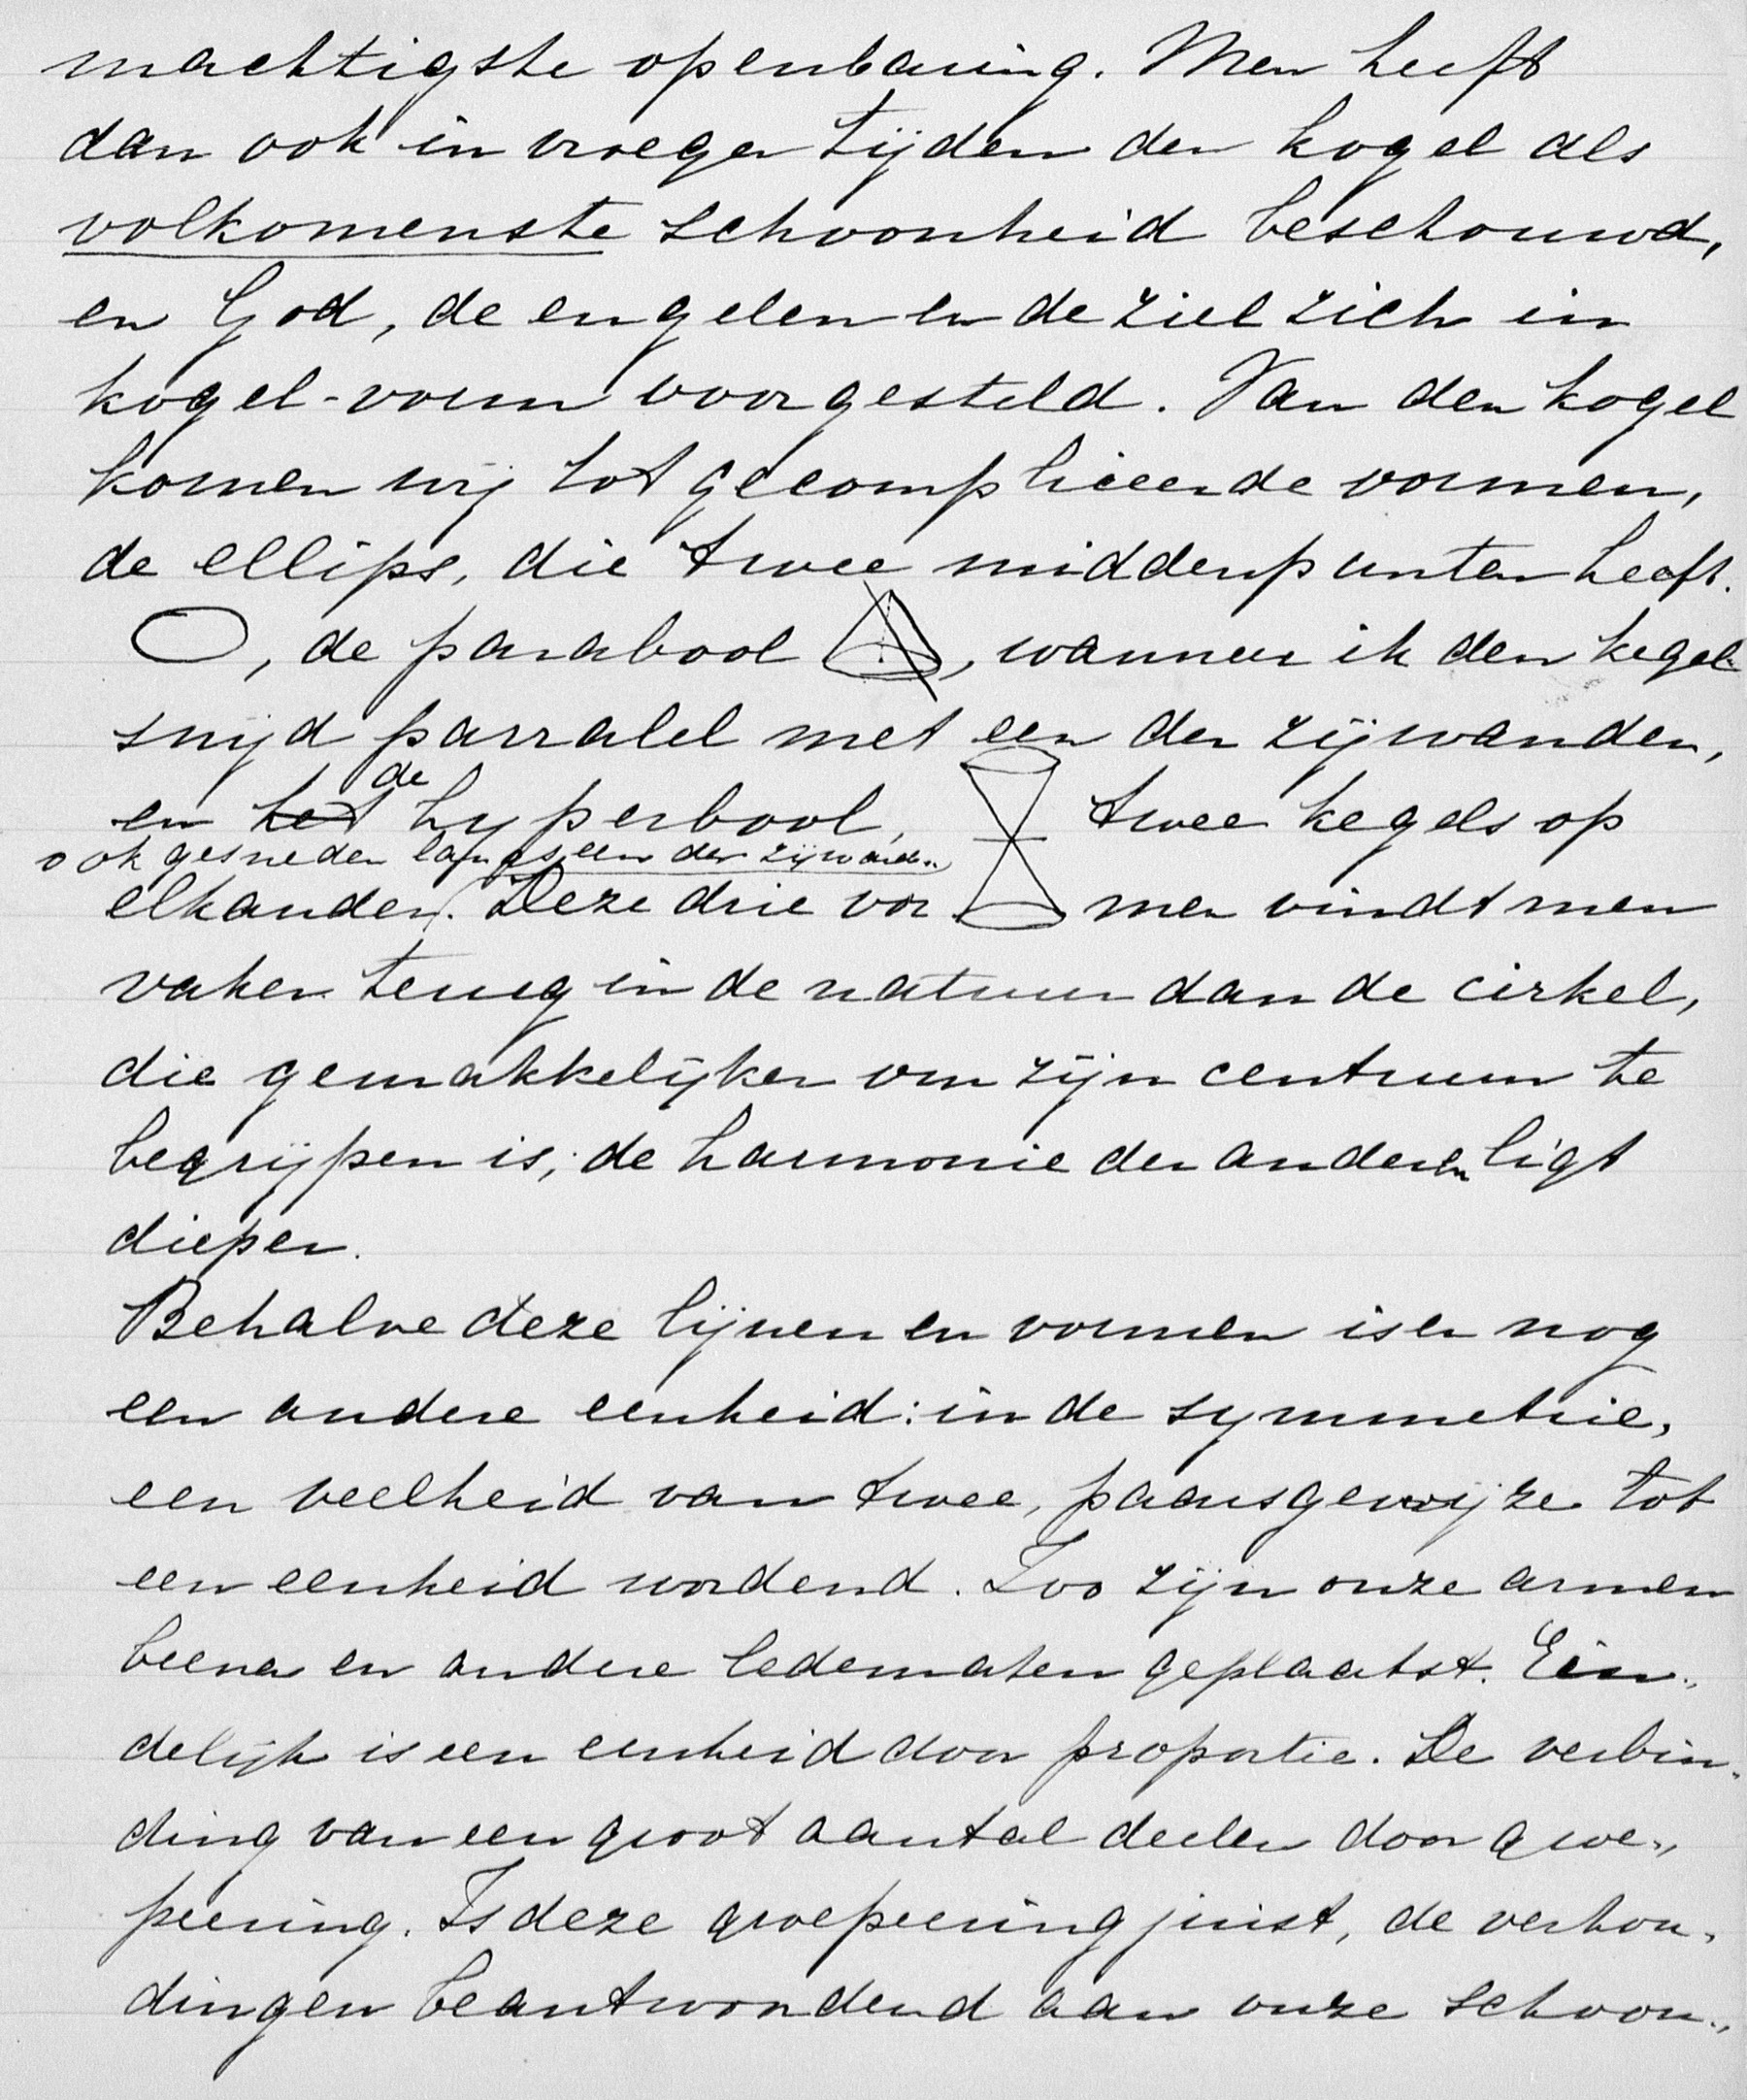 machtigste openbaring. Men heeft
dan ook in vroeger tijden den kogel als
volkomenste schoonheid beschouwd,
en God, de engelen en de ziel zich in
kogel-vorm voorgesteld. Van den kogel
komen wij tot gecompliceerde vormen,
de ellips, die twee middenpunten heeft.
, de parabool , wanneer ik den kegel
snijd parralel met een der zijwanden,
de
en het hyperbool, twee kegels op
ook gesneden langs een der zijwanden
elkander. Deze drie vor men vindt men
vaker terug in de natuur dan de cirkel,
die gemakkelijker om zijn centrum te
begrijpen is; de harmonie der anderen ligt
dieper.
Behalve deze lijnen en vormen is er nog
een andere eenheid: in de symmetrie,
een veelheid van twee, paarsgewijze tot
een eenheid wordend. Zoo zijn onze armen
beenen en andere ledematen geplaatst. Ein-
delijk is een eenheid door proportie. De verbin-
ding van een groot aantal deelen door groe-
peering. Is deze groepeering juist, de verhou-
dingen beantwoordend aan onze schoon-